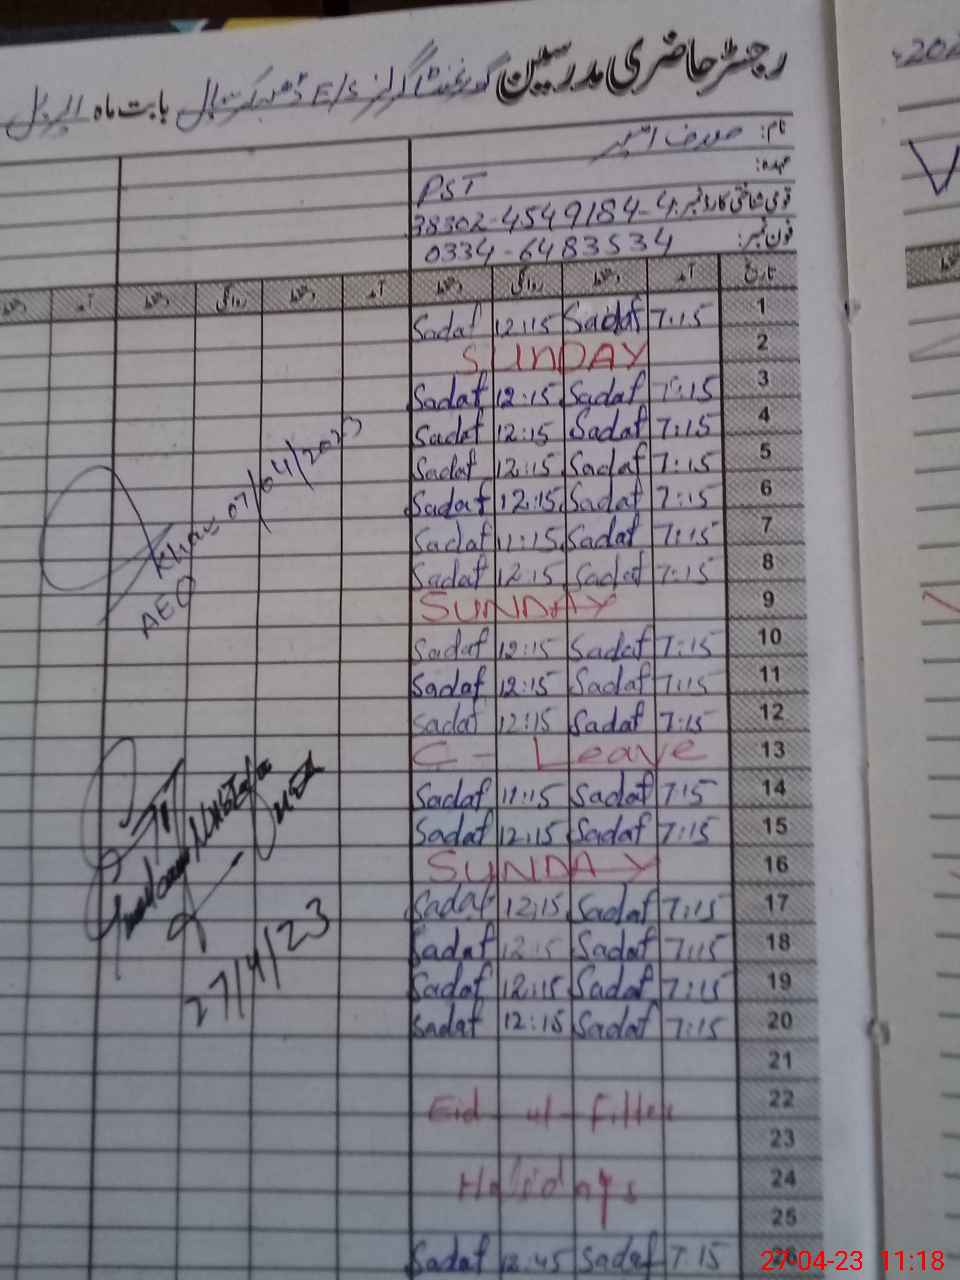 رجسٹر حاضری مدرسین گورنمنٹ گرلز E/S بابت ماہ اپریل
202
نام: صدف
عہدہ: PST
قومی شناختی کارڈ نمبر: 38302-4549184-4
فون نمبر: 0334-6483534
تاریخ آمد دستخط روانگی دستخط آمد دستخط روانگی دستخط آمد
1 7:15 Sadaf 12:15 Sadaf
2 SUNDAY
3 7:15 Sadaf 12:15 Sadaf
4 7:15 Sadaf 12:15 Sadaf
5 7:15 Sadaf 12:15 Sadaf
6 7:15 Sadaf 12:15 Sadaf
7 7:15 Sadaf 11:15 Sadaf
8 7:15 Sadaf 12:15 Sadaf
9 SUNDAY
10 7:15 Sadaf 12:15 Sadaf
11 7:15 Sadaf 12:15 Sadaf
12 7:15 Sadaf 12:15 Sadaf
13 C - Leave
14 7:15 Sadaf 11:15 Sadaf
15 7:15 Sadaf 12:15 Sadaf
16 SUNDAY
17 7:15 Sadaf 12:15 Sadaf
18 7:15 Sadaf 12:15 Sadaf
19 7:15 Sadaf 12:15 Sadaf
20 7:15 Sadaf 12:15 Sadaf
21
22 Eid - ul - fitter
23
24 Holidays
25
26 7:15 Sadaf 12:45 Sadaf
07/04/2023
AEO
27/4/23
27-04-23 11:18